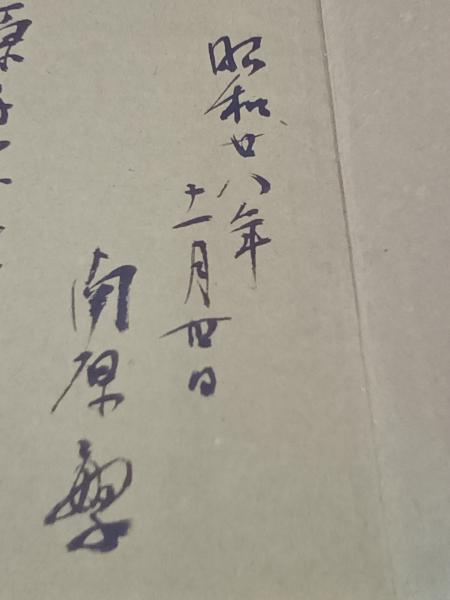 昭和廿八年
十一月丗日
南原繁